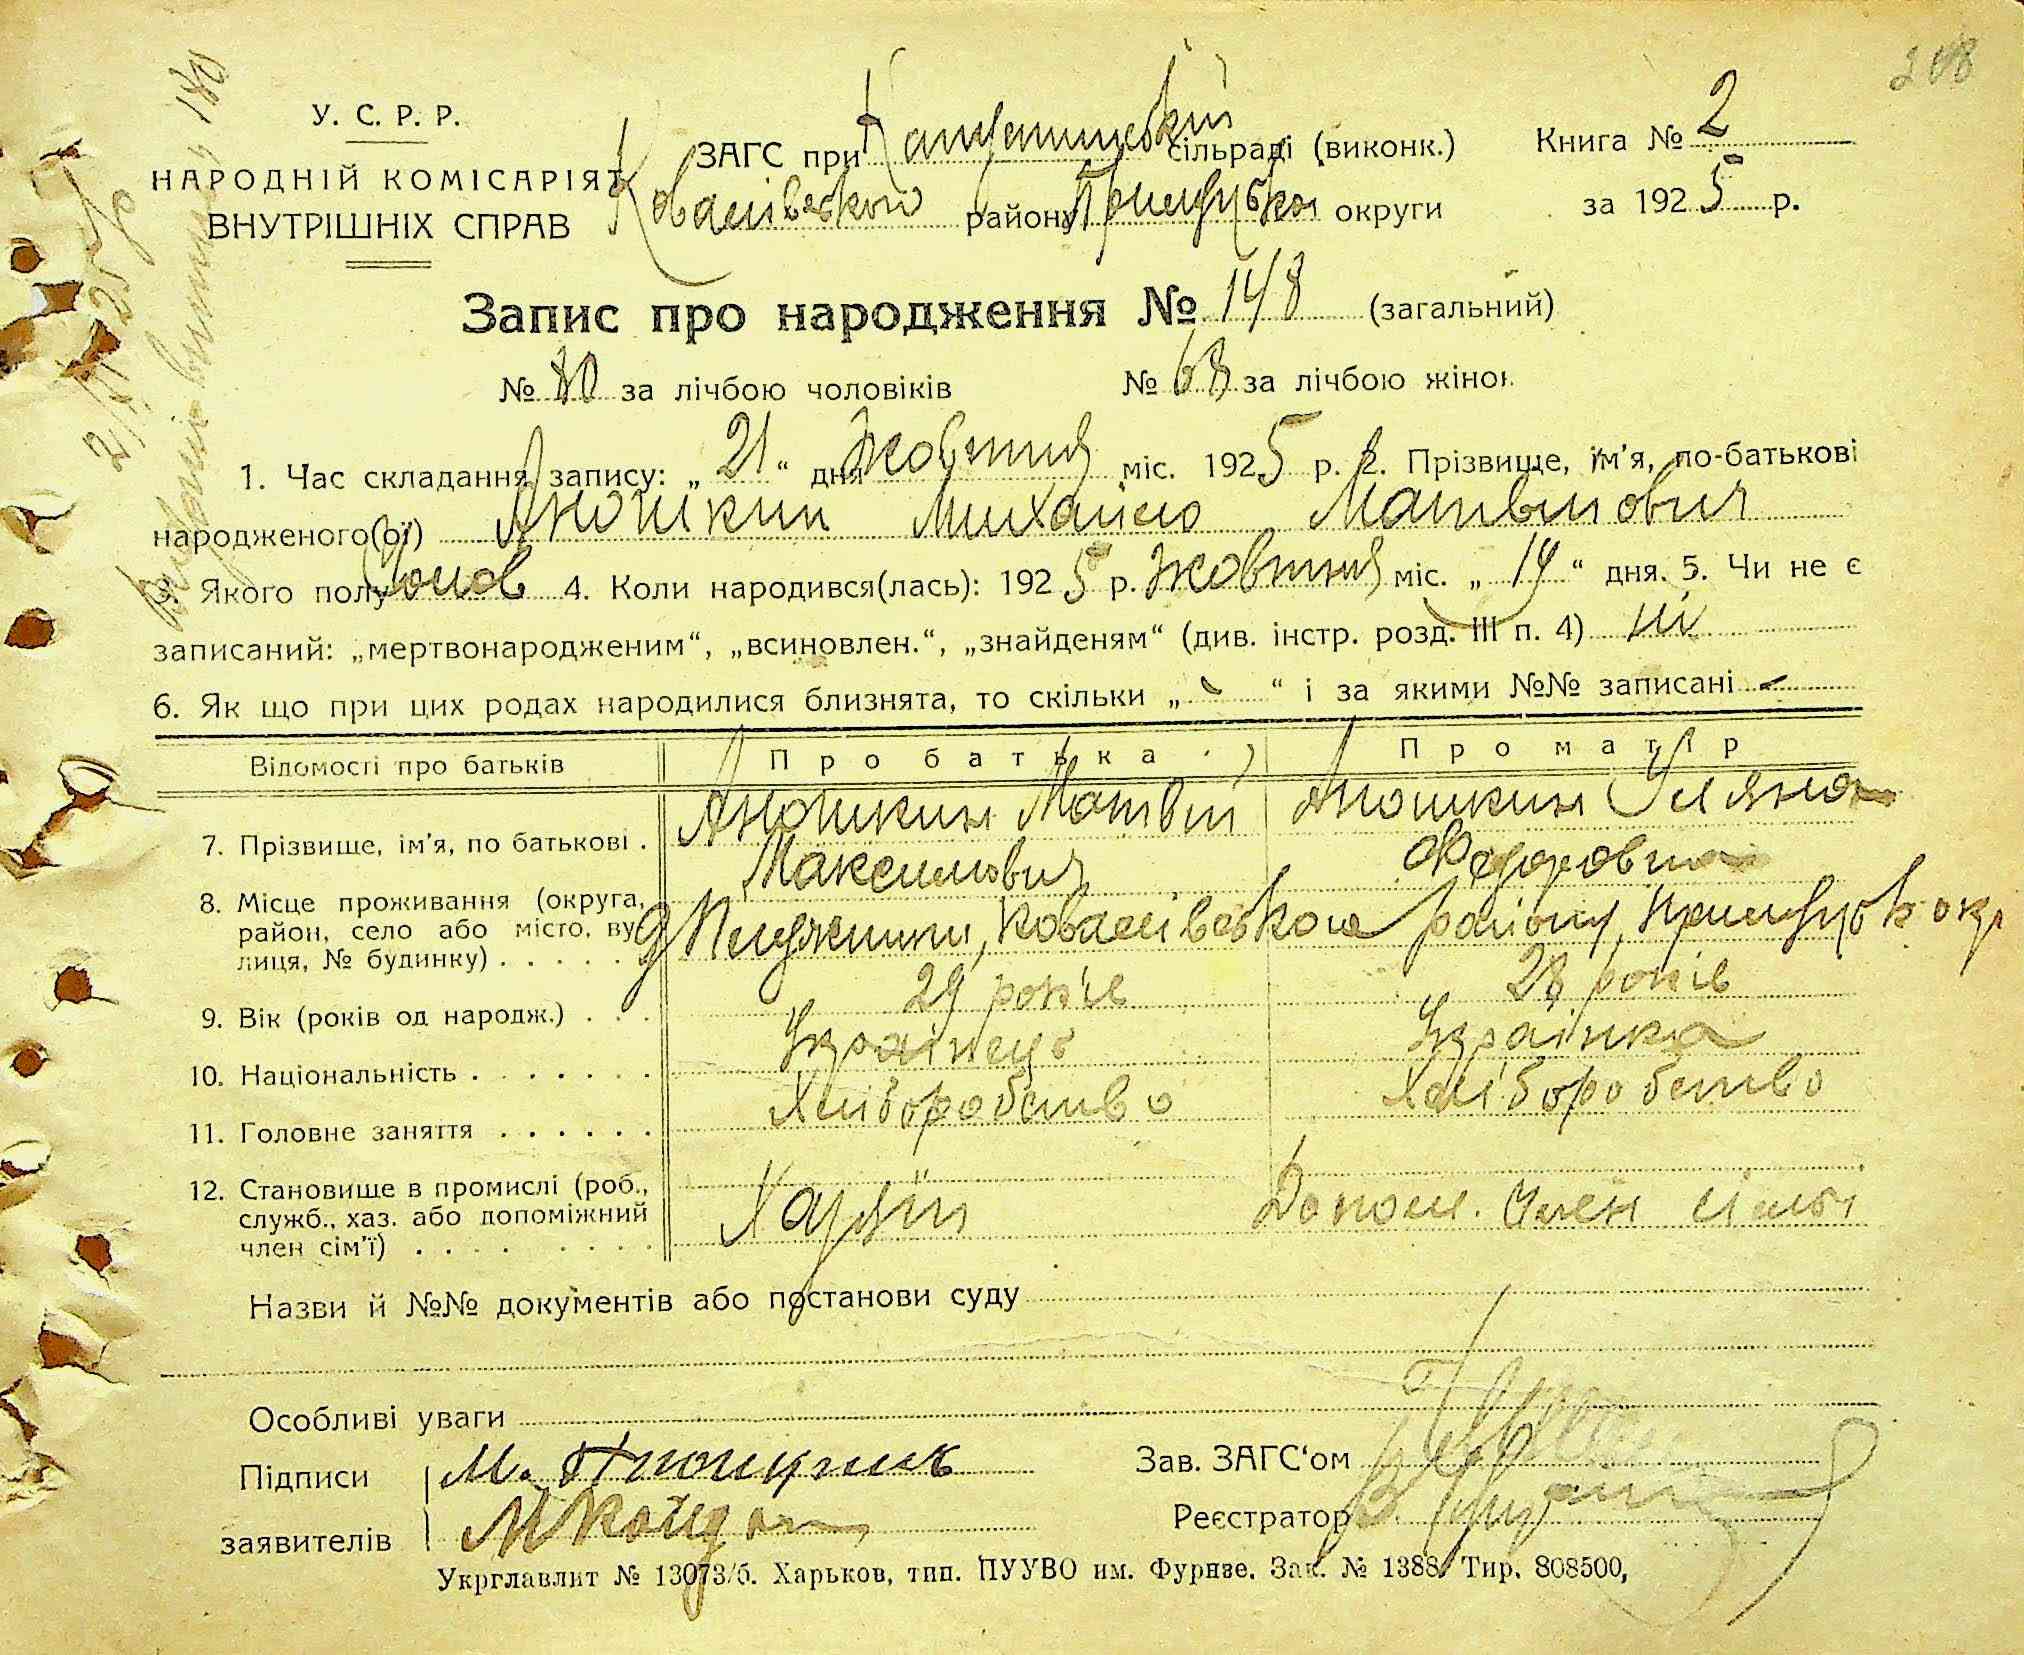 208
У. С. Р. Р.
НАРОДНІЙ КОМІСАРІЯТ
ВНУТРІШНІХ СПРАВ
ЗАГС при сільраді (виконк.)
Ковалівського району Прилуцької округи
Книга № 2
за 1925 р.
Запис про народження № 148 (загальний)
№ 80 за лічбою чоловіків № 68 за лічбою жінок
1. Час складання запису: „21“ дня Жовтня міс. 1925 р. 2. Прізвище, ім’я, по-батькові
народженого(ої) Аношкин Михайло Матвійович
3. Якого полу Чолов 4. Коли народився(лась): 1925 р. Жовтня міс. „19“ дня. 5. Чи не є
записаний: „мертвонародженим“, „всиновлен.“, „знайденям“ (див. інстр. розд. III п. 4) ні
6. Як що при цих родах народилися близнята, то скільки „-“ і за якими №№ записані -
Відомості про батьків Про батька Про матір
7. Прізвище, ім’я, по батькові . Аношкин Матвій Максимович Аношкин Уляна Федоровна
8. Місце проживання (округа, район, село або місто, вулиця, № будинку) . . . . . Ковалівського району, Прилуцьк окр
9. Вік (років од народж.) . . . 29 років 28 років
10. Національність . . . . . . . Українець Українка
11. Головне заняття . . . . . . Хліборобство Хліборобство
12. Становище в промислі (роб., служб., хаз. або допоміжний член сім’ї) . . . . . . . . Хазяїн Допом. Член сімьї
Назви й №№ документів або постанови суду
Особливі уваги
Підписи М.
заявителів
Зав. ЗАГС‘ом
Реєстратор
Укрглавлит № 13073/б. Харьков, тип. ПУУВО им. Фурнзе. Зак. № 1388. Тир. 808500,